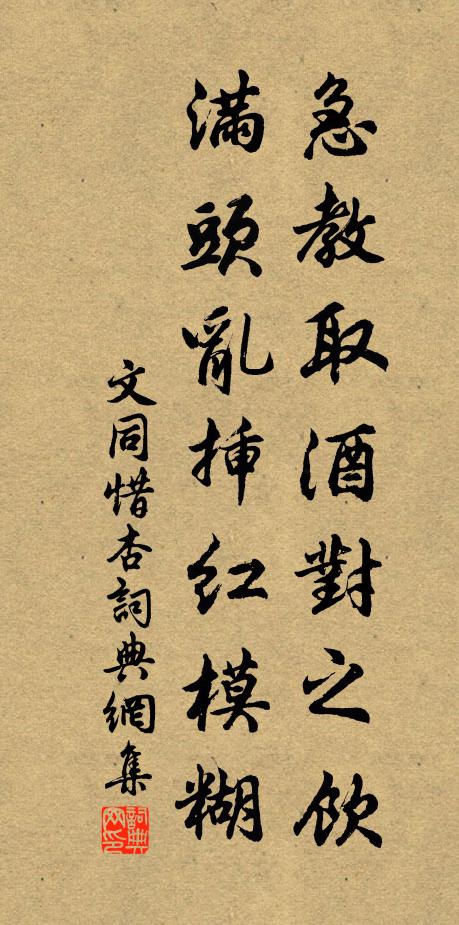 急教取酒對之飲
滿頭亂揷紅模糊
文同惜杏詞典網集
詞典网印